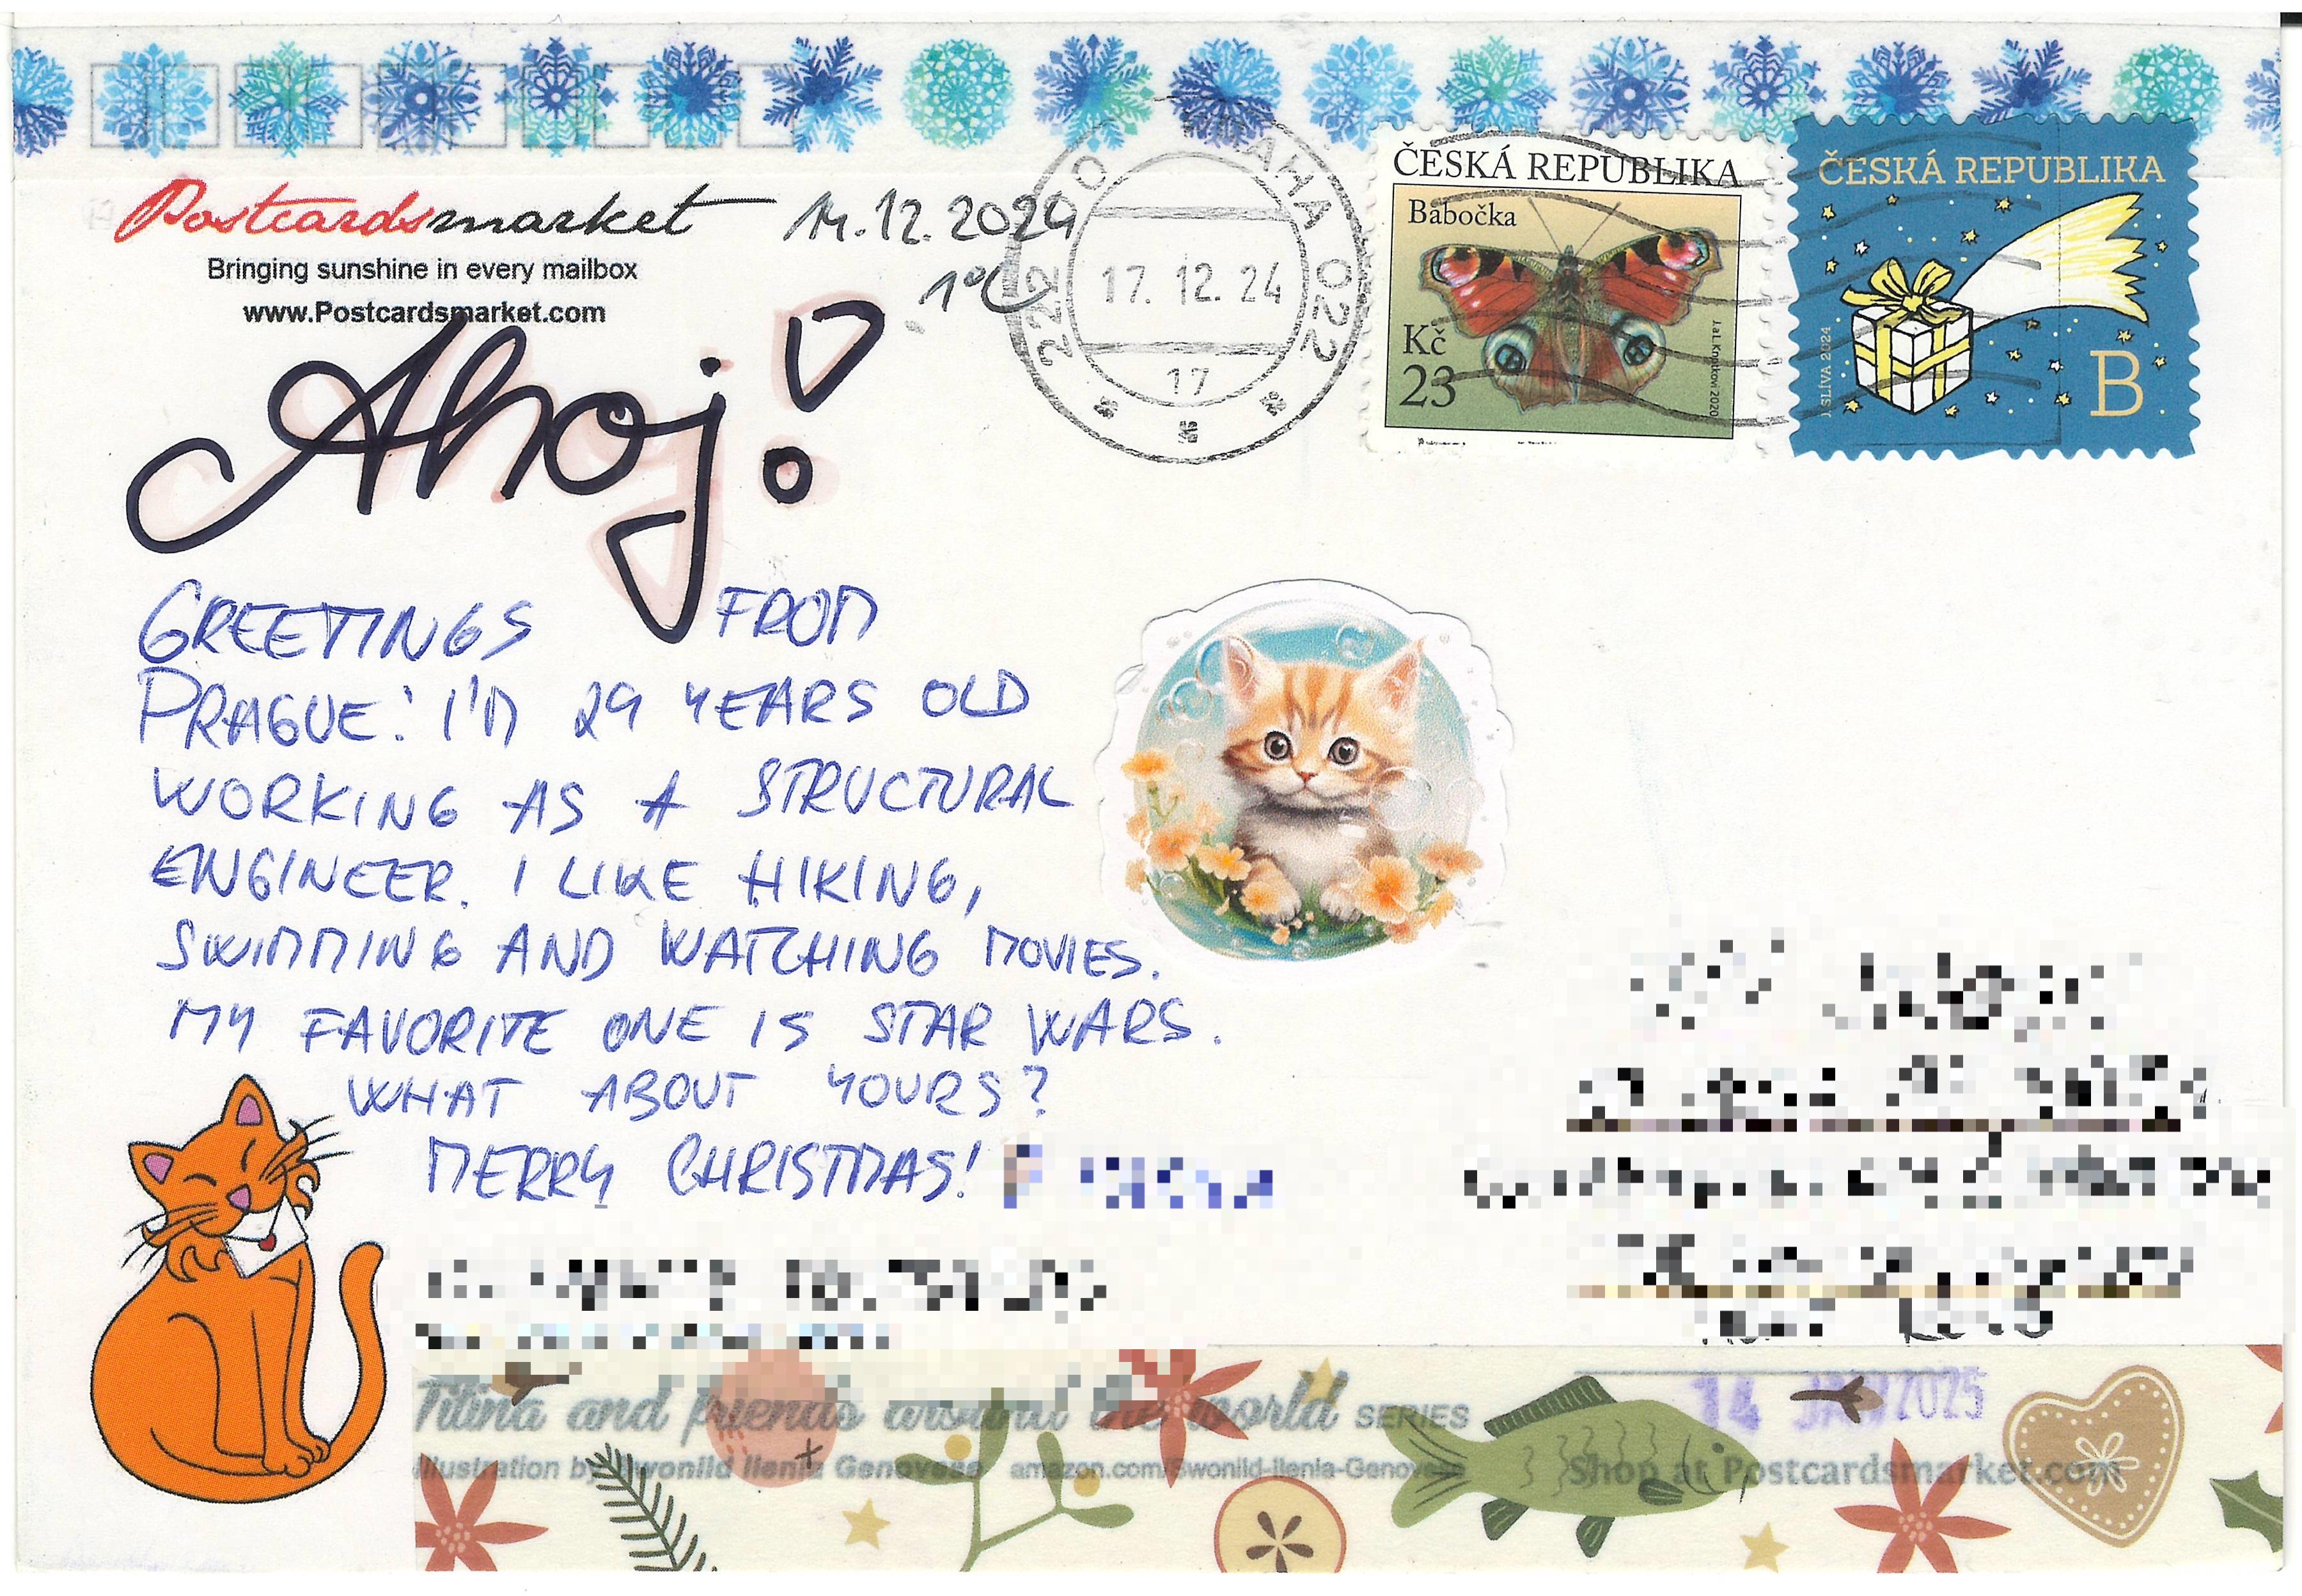 Postcardsmarket
Bringing sunshine in every mailbox
www.Postcardsmarket.com
14.12.2024
1°C
PRAHA 022
17. 12. 24
17
ČESKÁ REPUBLIKA
Babočka
Kč
23
J. a L. Knotkovi 2020
ČESKÁ REPUBLIKA
J. SLÍVA 2024
B
Ahoj!
GREETINGS FROM
PRAGUE! I'M 29 YEARS OLD
WORKING AS A STRUCTURAL
ENGINEER. I LIKE HIKING,
SWIMMING AND WATCHING MOVIES.
MY FAVORITE ONE IS STAR WARS.
WHAT ABOUT YOURS?
MERRY CHRISTMAS!
Titina and friends around the world SERIES
14 JAN 2025
Illustration by Swonild Ilenia Genovese amazon.com/Swonild-Ilenia-Genovese Shop at Postcardsmarket.com